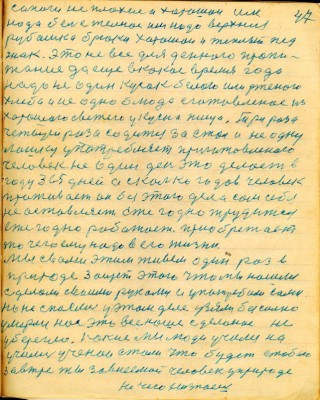 47
сапоги не плохие а хорошие им
надо белье теплое им надо верхняя
рубашка брюки хорошии и теплый пид
жак. Это не все для денного пропи-
тание да еще в какое время года
надо не один кусок белово или ржаного
хлеба и не одно блюда сготовленое из
хорошего свежего и вкусна пища. Три раза
четыри раза садится за стол и не одну
ложку употребляет приготовленого
человек не один ден это делает в
году 365 дней а сколко годов человек
проживает он без этого дела сам себя
не оставляет ежегодно трудится
ежегодно работает приобретает
то чего ему надо в его жизни.
Мы своим этим живем один раз в
природе за счет этого что мы нашли
сделали своими руками и употребили сами
но не спаслись у этом деле взяли
умерли нас это все наше сделаное не
уберегло. Какие мы люди учили на
учили ученой стали что будет с тобою
завтра ты зависимой человек в природе